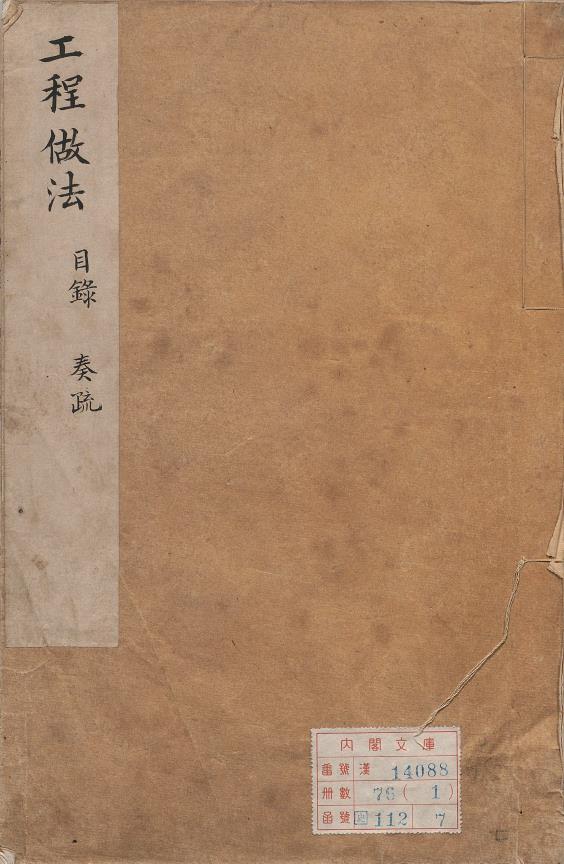 工程做法
目錄 奏疏
内閣文庫
番號 漢 14088
冊數 76(1)
函號 112 7